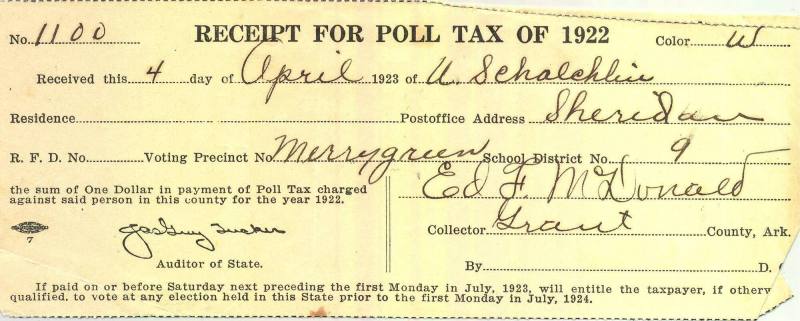 No. 1100 RECEIPT FOR POLL TAX OF 1922 Color W
Received this 4 day of April 1923 of U. Schalchlin
Residence Postoffice Address Sheridan
R. F. D. No. Voting Precinct No Merrygreen School District No. 9
the sum of One Dollar in payment of Poll Tax charged
against said person in this county for the year 1922.
Ed F. McDonald
Collector Grant County, Ark.
7
Jas Guy Tucker
Auditor of State.
By D. C
If paid on or before Saturday next preceding the first Monday in July, 1923, will entitle the taxpayer, if otherw
qualified, to vote at any election held in this State prior to the first Monday in July, 1924.